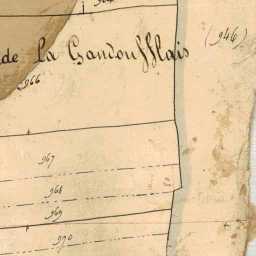 de La Gandoufflais
(946)
966
967
968
969
970